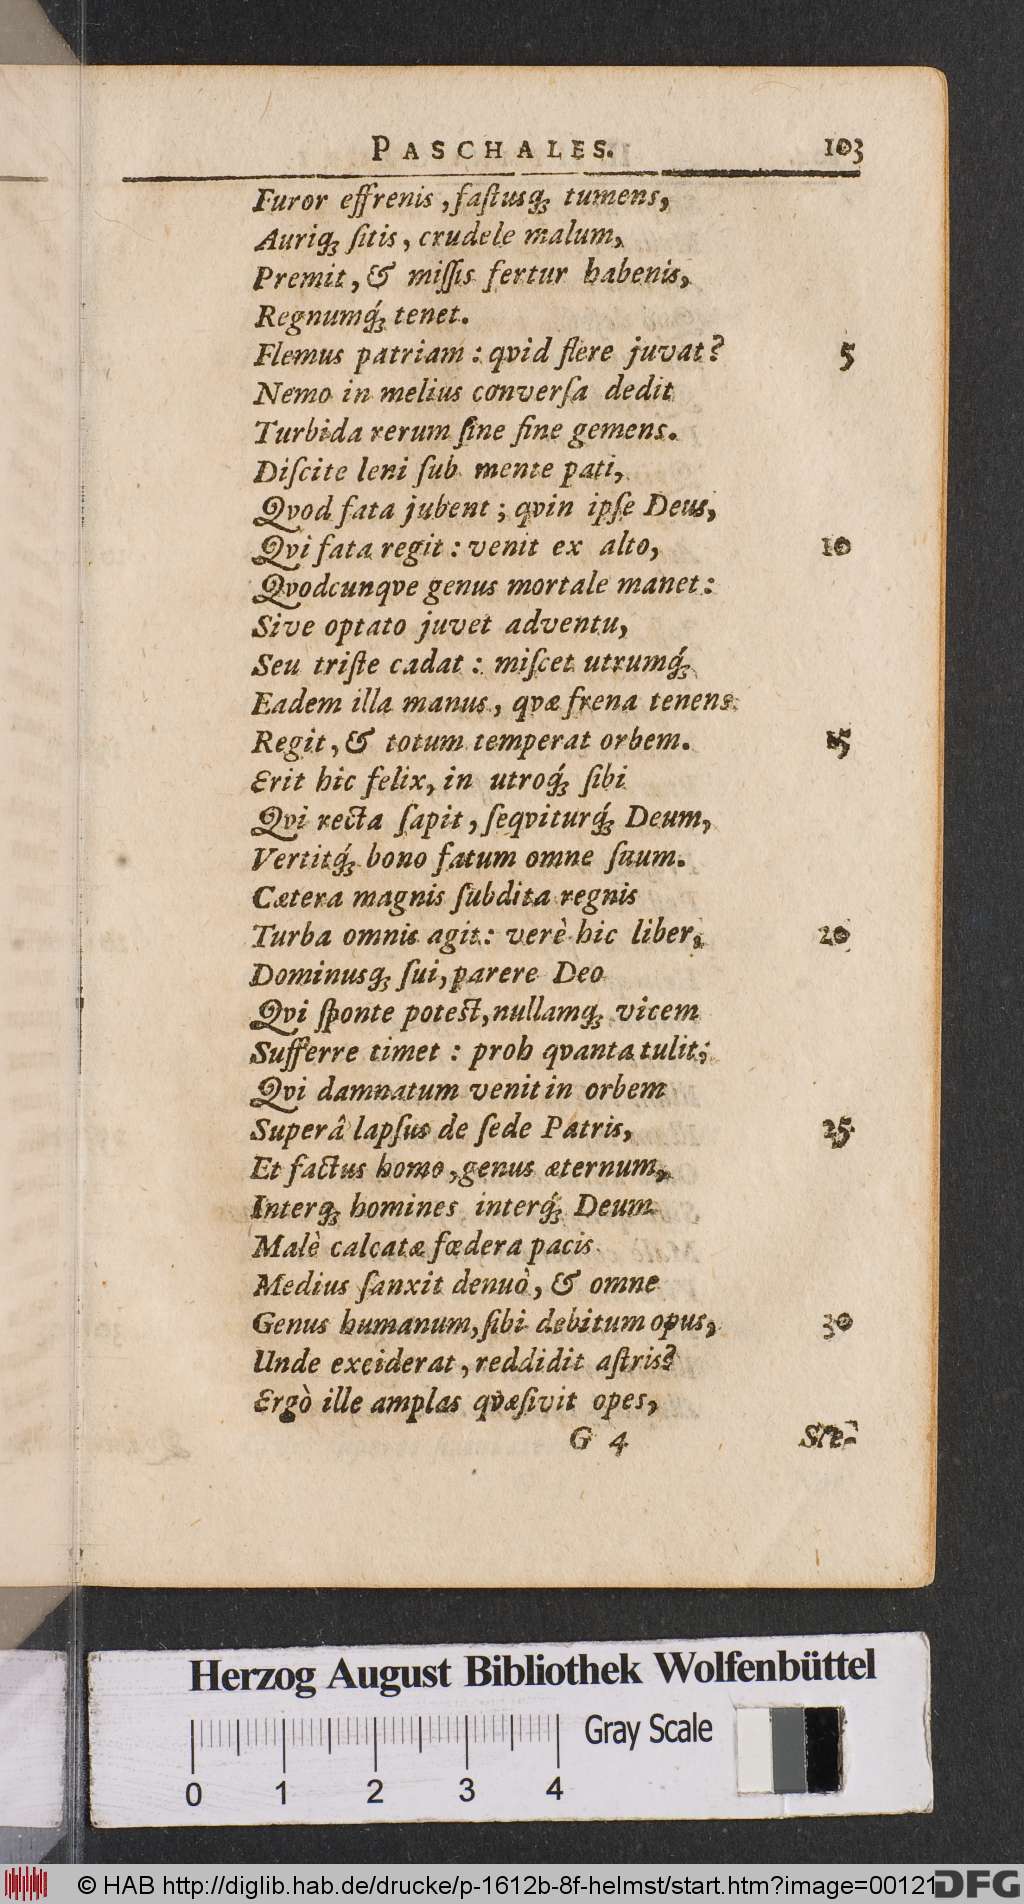 PASCHALES. 103
Furor effrenis, faſtusq́ꝫ tumens,
Auriqꝫ ſitis, crudele malum,
Premit, & miſſis fertur habenis,
Regnumq́ꝫ tenet.
Flemus patriam : qvid flere juvat? 5
Nemo in melius converſa dedit
Turbida rerum ſine fine gemens.
Diſcite leni ſub mente pati,
Qvod fata jubent ; qvin ipſe Deus,
Qvi fata regit : venit ex alto, 10
Qvodcunqve genus mortale manet :
Sive optato juvet adventu,
Seu triſte cadat : miſcet utrumq́ꝫ
Eadem illa manus, qvæ frena tenens
Regit, & totum temperat orbem. 15
Erit hic felix, in utroq́ꝫ ſibi
Qvi recta ſapit, ſeqviturq́ꝫ Deum,
Vertitq́ꝫ bono fatum omne ſuum.
Cætera magnis ſubdita regnis
Turba omnis agit : verè hic liber, 20
Dominusqꝫ ſui, parere Deo
Qvi ſponte poteſt, nullamqꝫ vicem
Sufferre timet : proh qvanta tulit;
Qvi damnatum venit in orbem
Superâ lapſus de ſede Patris, 25
Et factus homo, genus æternum,
Interqꝫ homines interq́ꝫ Deum
Malè calcatæ fœdera pacis
Medius ſanxit denuò, & omne
Genus humanum, ſibi debitum opus, 30
Unde exciderat, reddidit aſtris?
Ergò ille amplas qvæſivit opes,
G 4 Ste-
Herzog August Bibliothek Wolfenbüttel
Gray Scale
0 1 2 3 4
© HAB http://diglib.hab.de/drucke/p-1612b-8f-helmst/start.htm?image=00121
DFG